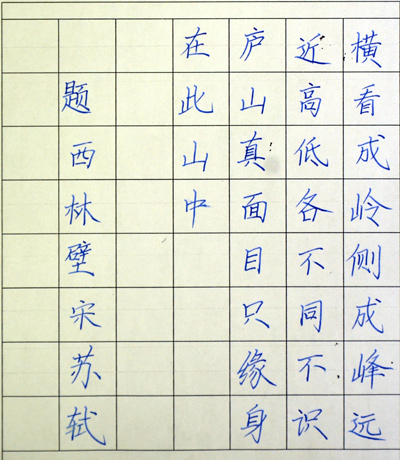 横看成岭侧成峰远
近高低各不同不识
庐山真面目只缘身
在此山中
题西林壁宋苏轼